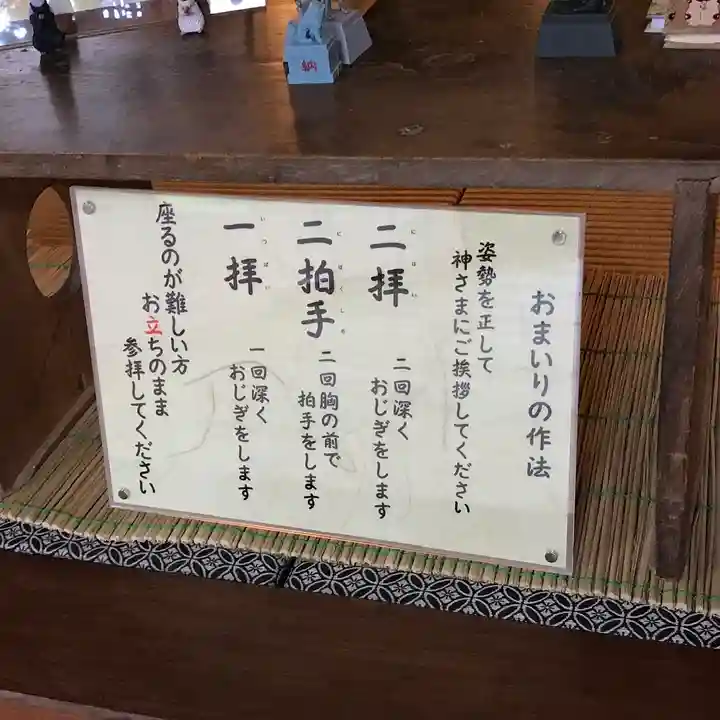 納
おまいりの作法
姿勢を正して
神さまにご挨拶してください
にはい
二拝
二回深く
おじぎをします
にはくしゅ
二拍手
二回胸の前で
拍手をします
いっぱい
一拝
一回深く
おじぎをします
座るのが難しい方
お立ちのまま
参拝してください